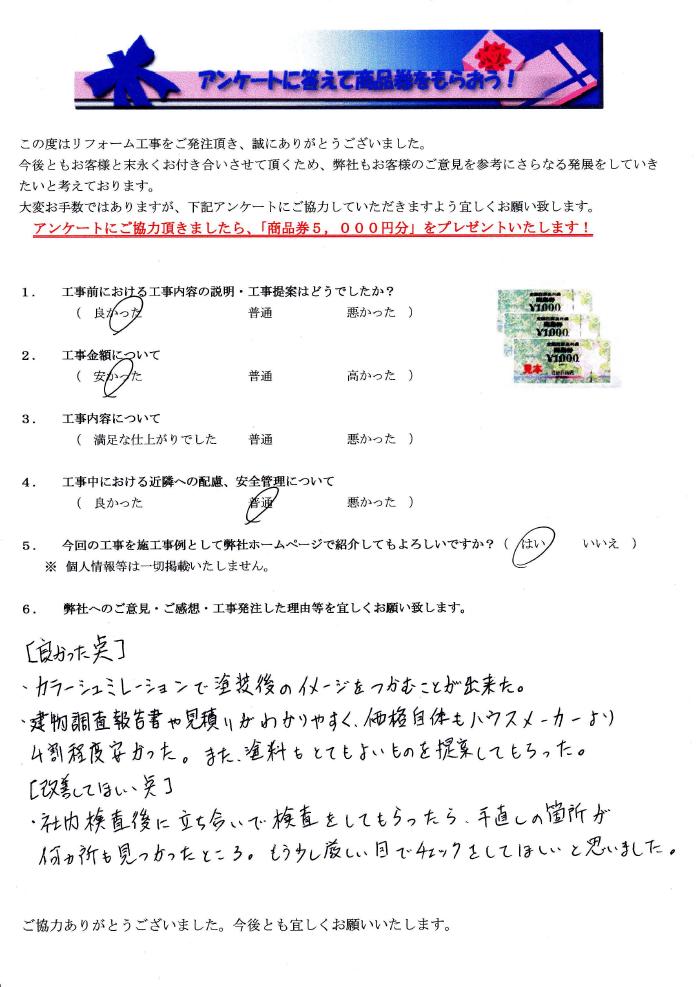 アンケートに答えて商品券をもらおう！
この度はリフォーム工事をご発注頂き、誠にありがとうございました。
今後ともお客様と末永くお付き合いさせて頂くため、弊社もお客様のご意見を参考にさらなる発展をしていき
たいと考えております。
大変お手数ではありますが、下記アンケートにご協力していただきますよう宜しくお願い致します。
アンケートにご協力頂きましたら、「商品券５，０００円分」をプレゼントいたします！
１．　工事前における工事内容の説明・工事提案はどうでしたか？
（　良かった　普通　悪かった　）
２．　工事金額について
（　安かった　普通　高かった　）
３．　工事内容について
（　満足な仕上がりでした　普通　悪かった　）
４．　工事中における近隣への配慮、安全管理について
（　良かった　普通　悪かった　）
５．　今回の工事を施工事例として弊社ホームページで紹介してもよろしいですか？（　はい　いいえ　）
※　個人情報等は一切掲載いたしません。
６．　弊社へのご意見・ご感想・工事発注した理由等を宜しくお願い致します。
¥1,000
¥1,000
¥1,000
見本
[良かった点]
・カラーシュミレーションで塗装後のイメージをつかむことが出来た。
・建物調査報告書や見積りがわかりやすく、価格自体もハウスメーカーより
4割程度安かった。また、塗料もとてもよいものを提案してもらった。
[改善してほしい点]
・社内検査後に立ち合いで検査をしてもらったら、手直しの箇所が
何カ所も見つかったところ。もう少し厳しい目でチェックをしてほしいと思いました。
ご協力ありがとうございました。今後とも宜しくお願いいたします。